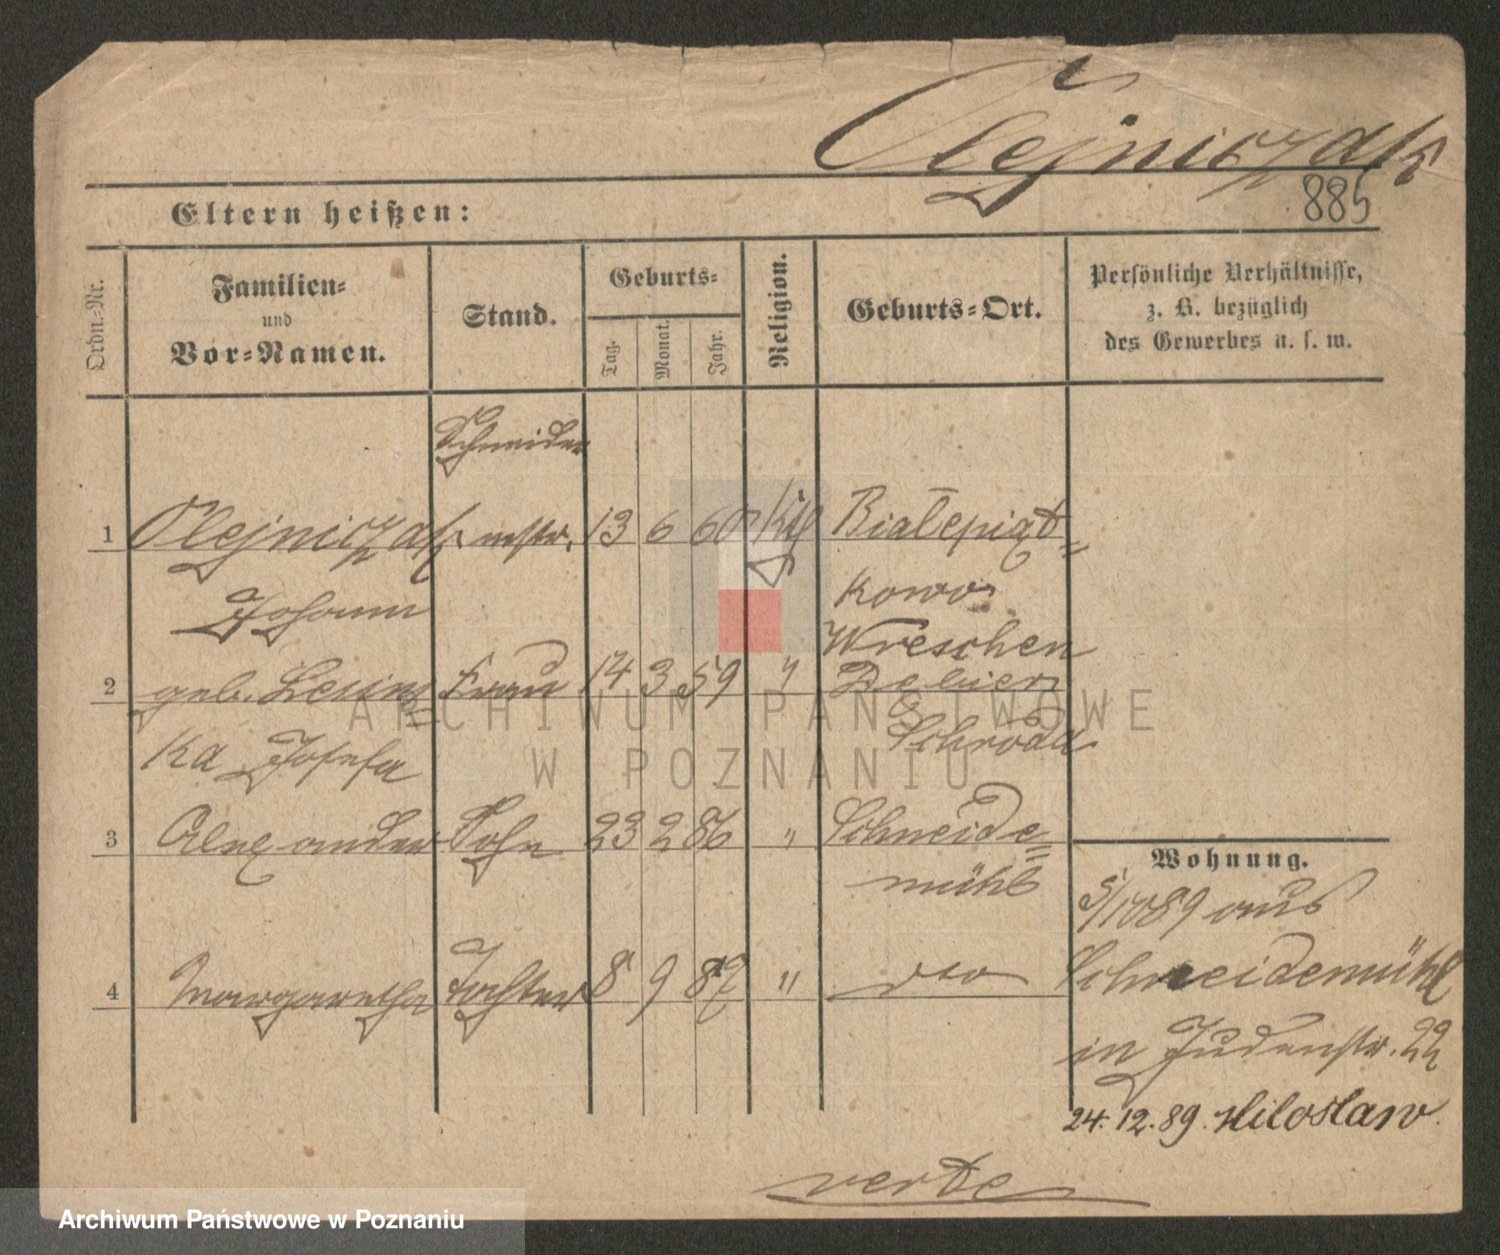 Olejniczak
885
Eltern heißen:
Ordn.-Nr.
Familien-
und
Vor-Namen.
Stand.
Geburts-
Tag.
Monat.
Jahr.
Religion.
Geburts-Ort.
Persönliche Verhältnisse,
z. B. bezüglich
des Gewerbes u. s. w.
Schneider
1 Olejniczak mstr. 13 6 60 Kth Białepiąt=
Johann kowo
Wreschen
2 geb. Frau 14 3 59 "
ka Josefa Schroda
3 Alexander Sohn 23 2 86 " Schneide=
mühl
4 Margaretha Tochter 8 9 87 " dto
Wohnung.
5/10 89 aus
Schneidemühl
in Judenstr. 22
24.12.89. Miloslaw
verte
ARCHIWUM PAŃSTWOWE
W POZNANIU
Archiwum Państwowe w Poznaniu